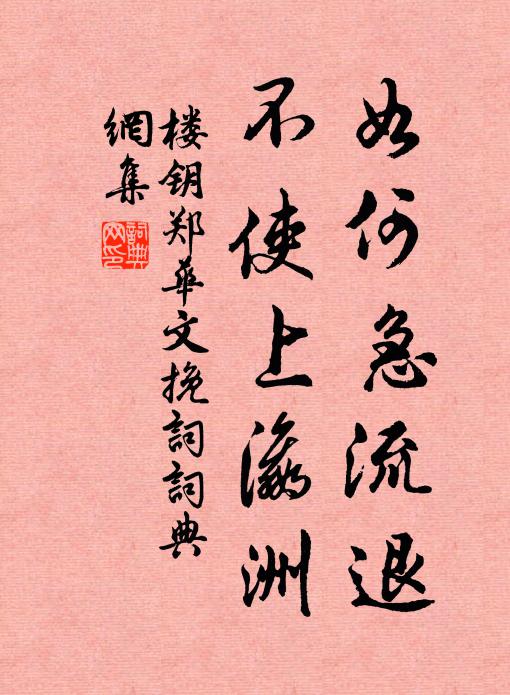 如何急流退
不使上瀛洲
楼钥郑华文挽詞詞典
網集
詞典网印